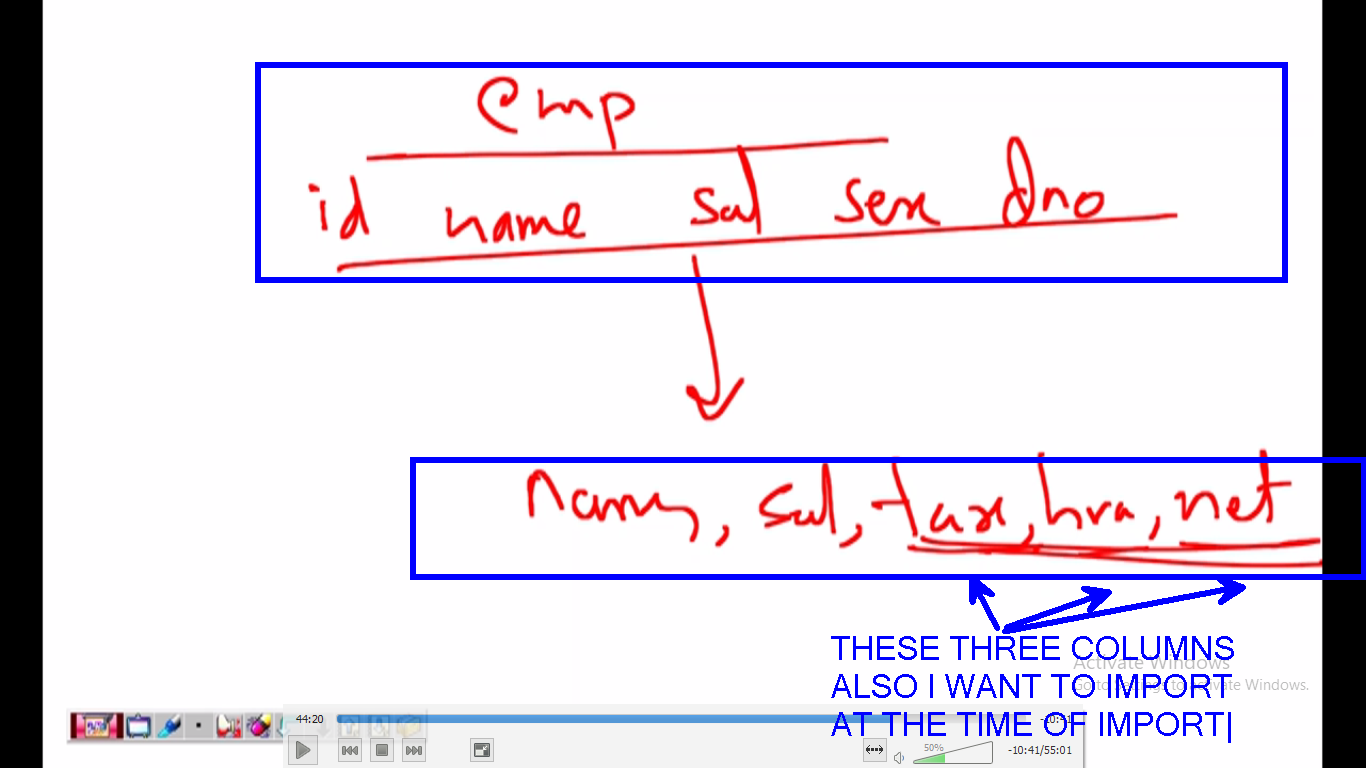 emp
id name sal sex dno
name, sal, tax, hra, net
THESE THREE COLUMNS
ALSO I WANT TO IMPORT
AT THE TIME OF IMPORT
Activate Windows
Go to Settings to activate Windows.
44:20
50%
-10:41/55:01